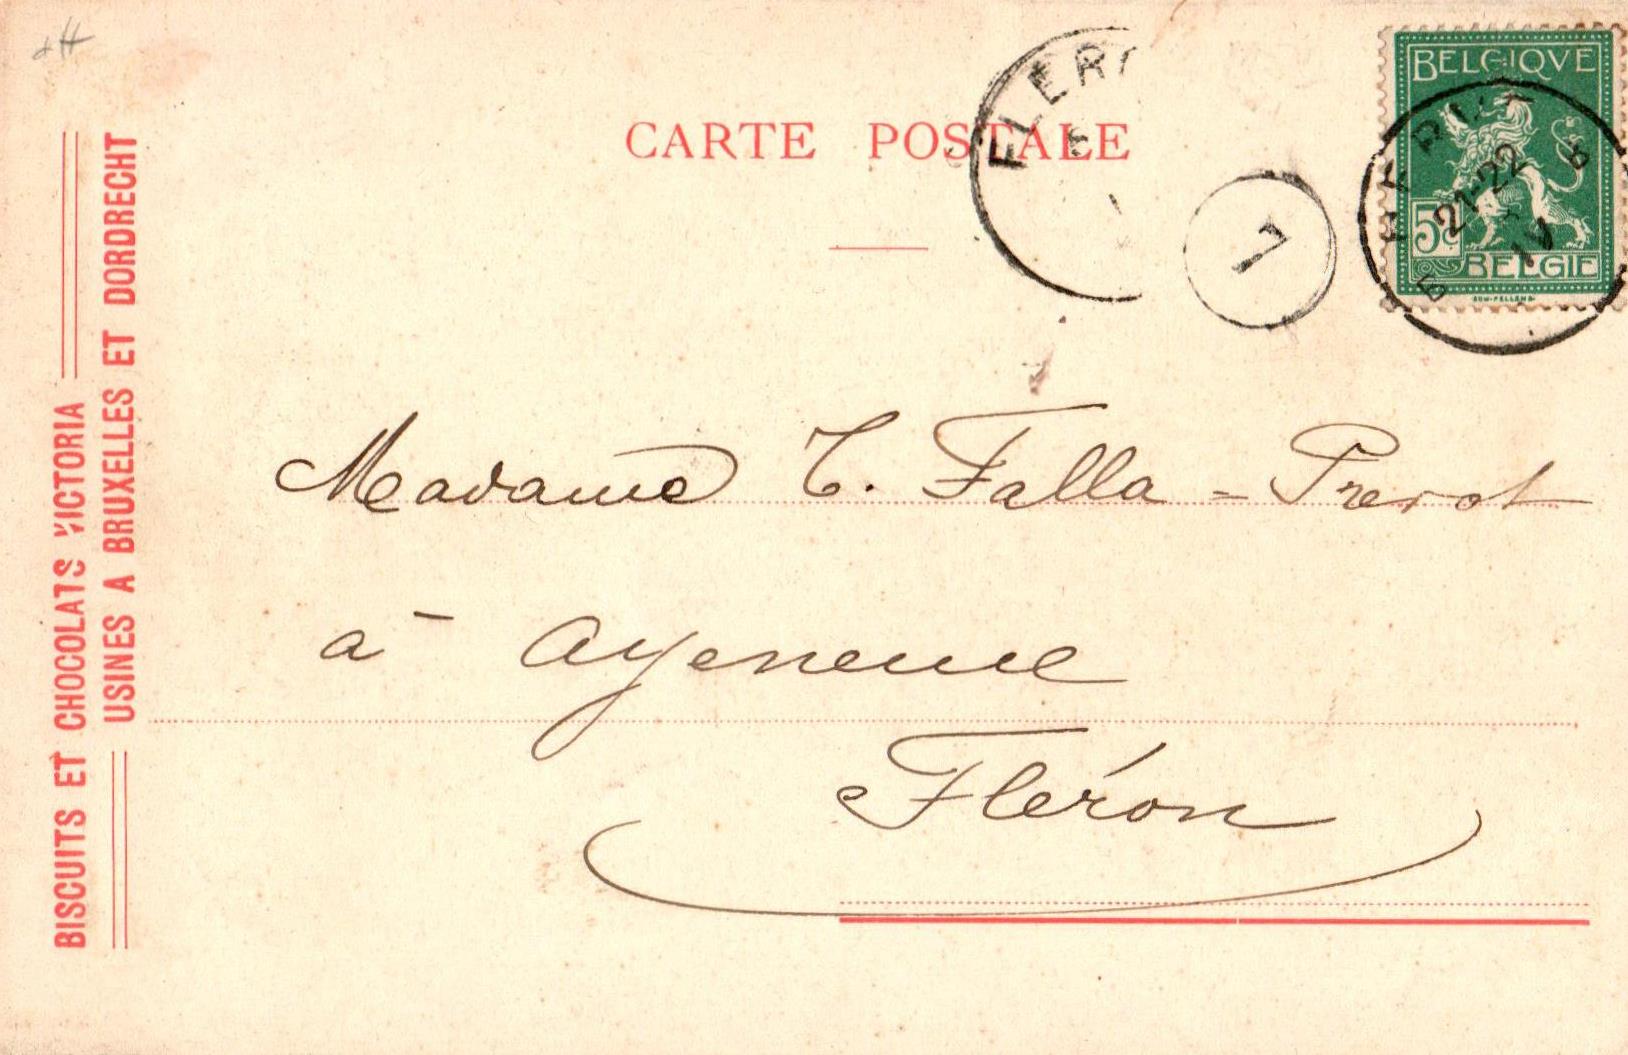 CARTE POSTALE
BELGIQUE
5c
BELGIE
21-22
IV
7
BISCUITS ET CHOCOLATS VICTORIA
USINES A BRUXELLES ET DORDRECHT
Madame T. Falla = Prevot
à Ayeneux
Fléron